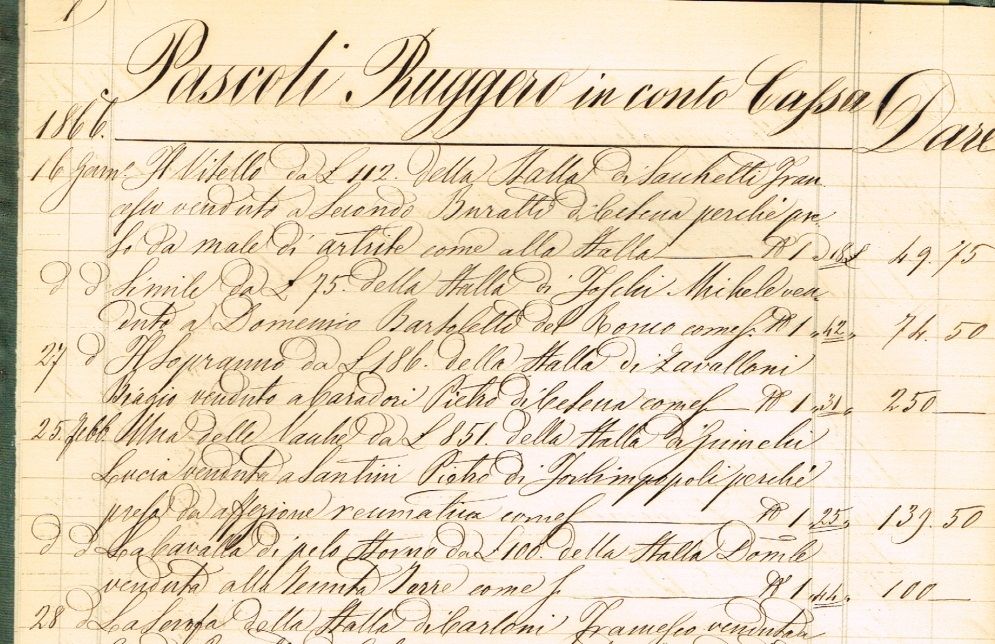 Pascoli Ruggero in conto Cassa Dare
1866.
16 Genn.º Il Vitello da £ 112. della Stalla di Sacchetti Fran
cesco venduto a Secondo Buratti di Cesena perchè pre
so da male di artrite come alla Stalla 1 18 49.75
d d Simile da £ 75. della Stalla di Foschi Michele ven
duto a Domenico Bartoletti del Ronco come s. 1 42 74.50
27 d Il Sopranno da £ 186. della Stalla di Zavalloni
Biagio venduto a Caradori Pietro di Cesena come s 1 31 250
25 Febb. Una delle Vacche da £ 851. della Stalla di
Lucia venduta a Santini Pietro di Forlimpopoli perchè
presa da affezione reumatica come s 1 25 139.50
d d La Cavalla di pelo Storno da £ 100. della Stalla Dom.le
venduta alla Tenuta Torre come s 1 44 100
28 d La della Stalla di Carloni Francesco venduta